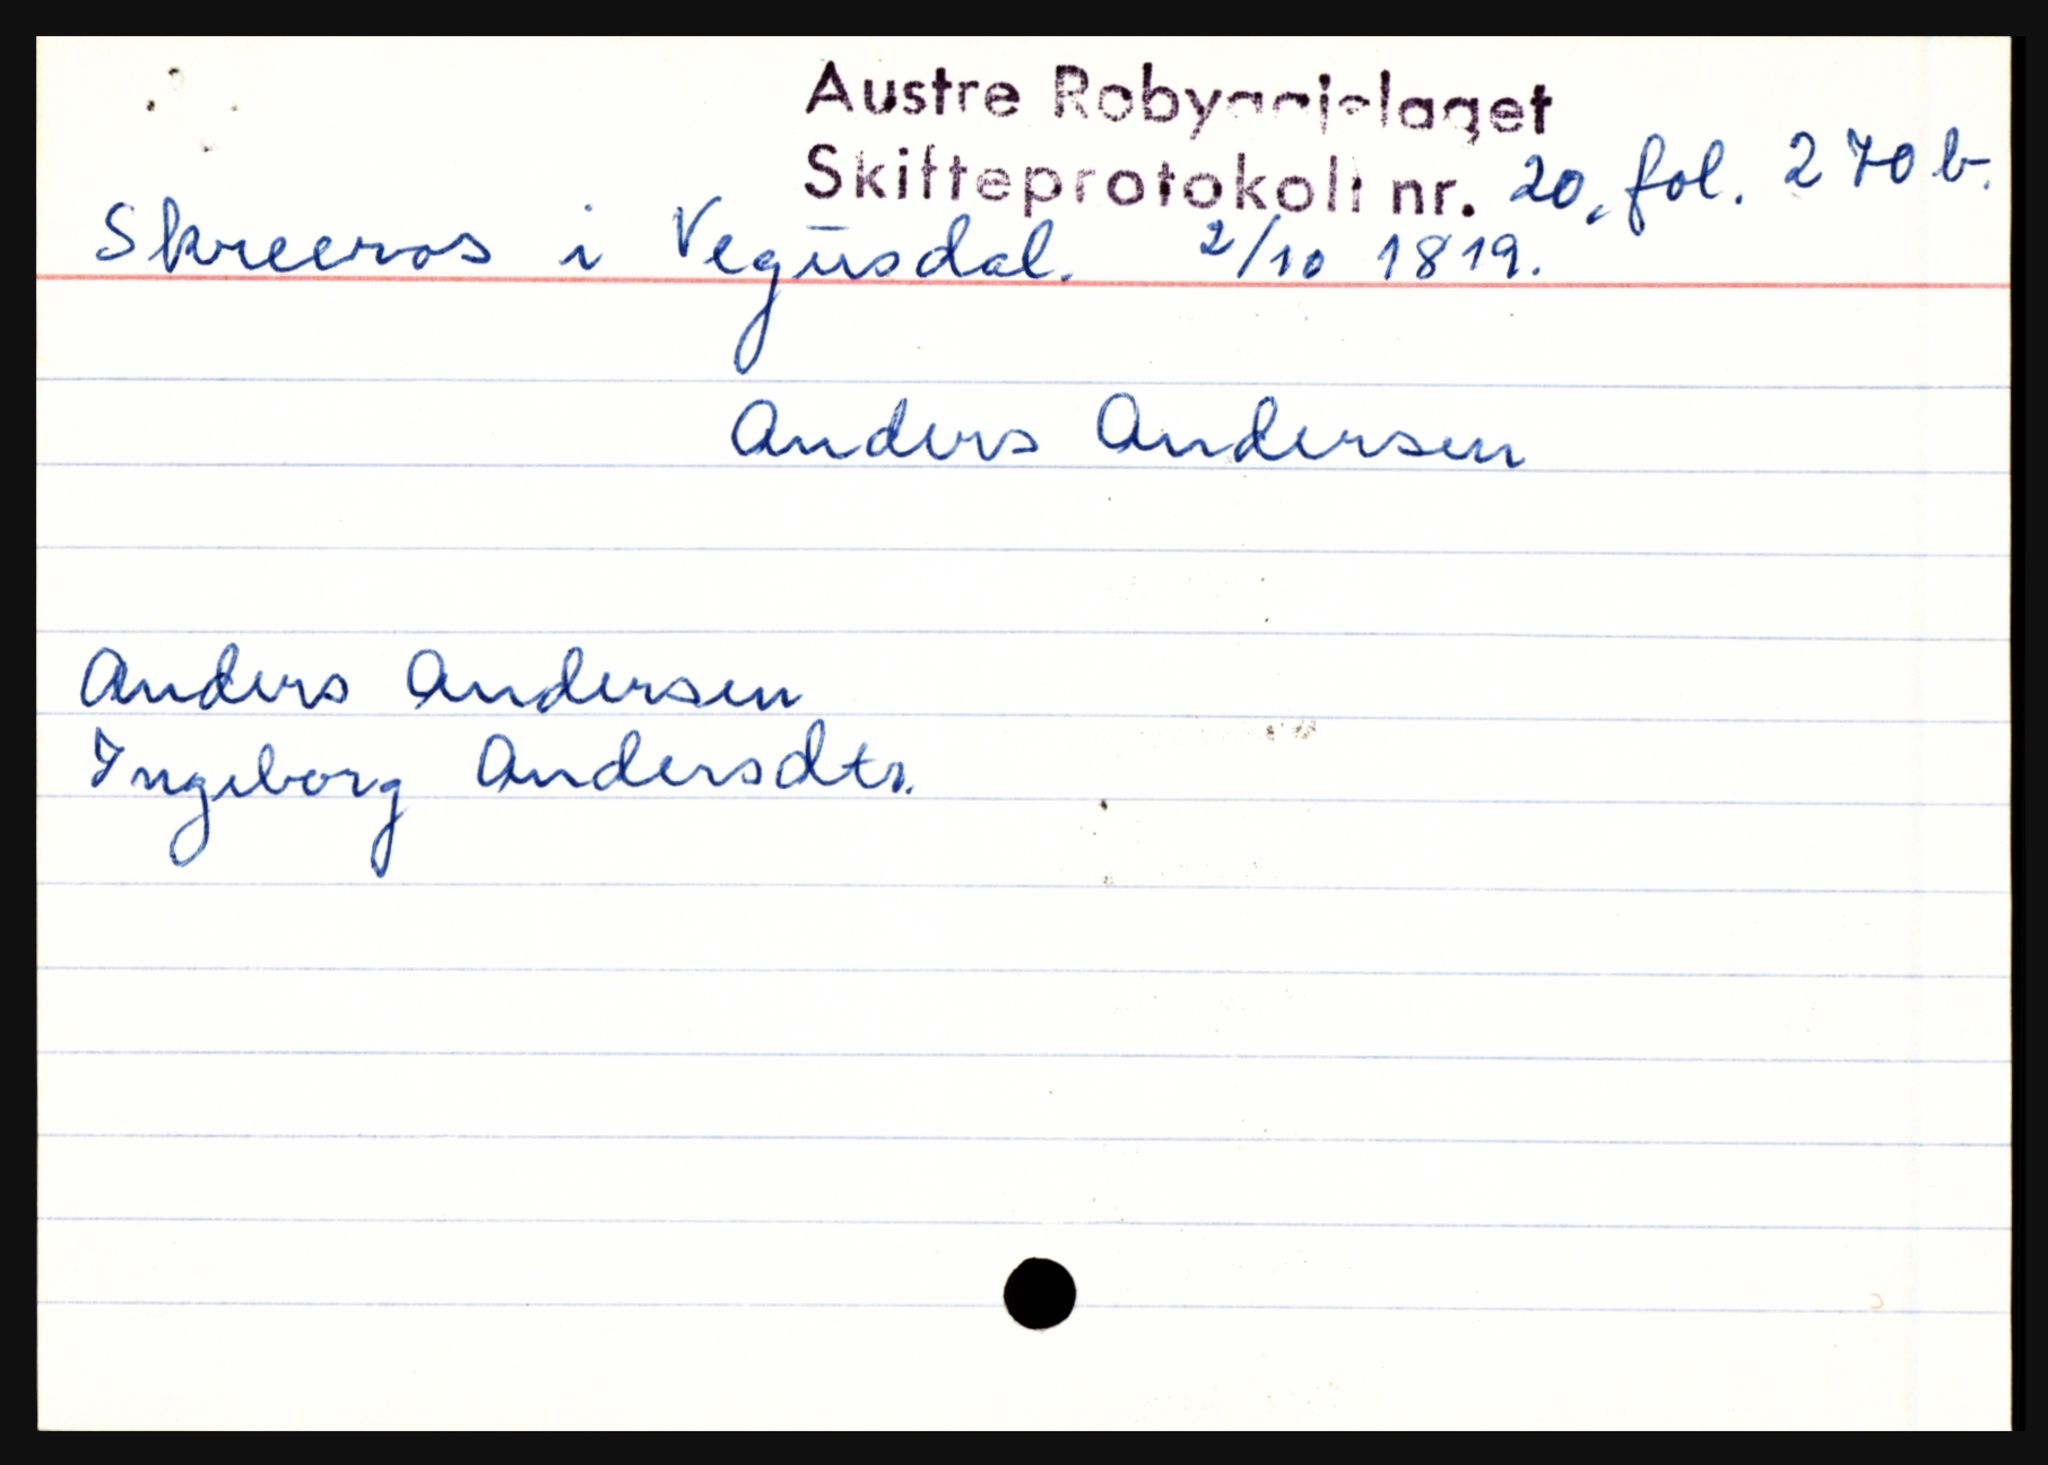 Austre Robyggjelaget
Skifteprotokoll nr. 20, fol. 270 b.
Skreeros i Vegusdal. 2/10 1819.
Anders Andersen
Anders Andersen
Ingeborg Andersdtr.